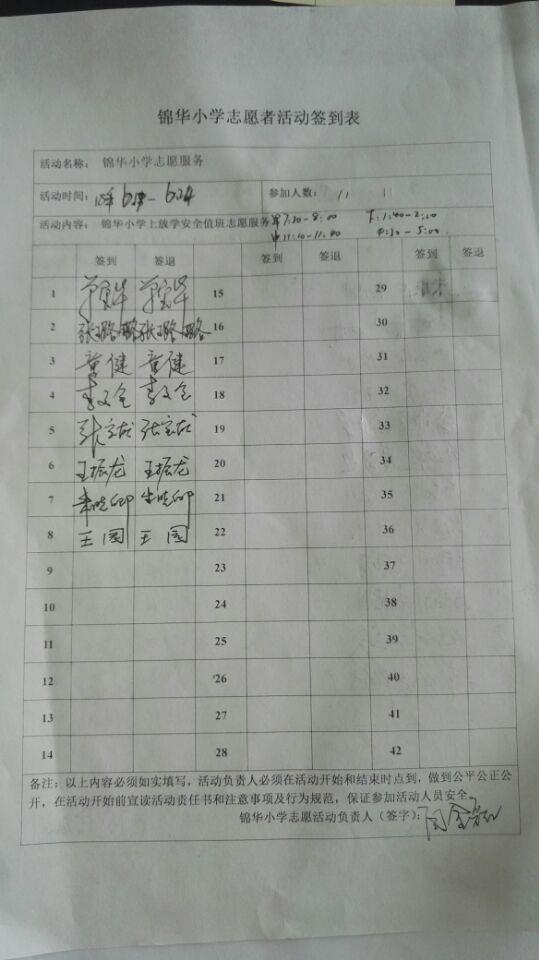 锦华小学志愿者活动签到表
活动名称： 锦华小学志愿服务
活动时间： 参加人数： 11
活动内容： 锦华小学上放学安全值班志愿服务 早7:30-8:00 下:1:40-2:10
中11:10-11:40 4:30-5:00
签到 签退 签到 签退 签到 签退
1 15 29
2 张璐璐 张璐璐 16 30
3 童健 童健 17 31
4 李文全 李文全 18 32
5 19 33
6 王振龙 王振龙 20 34
7 朱晓卿 朱晓卿 21 35
8 王国 王国 22 36
9 23 37
10 24 38
11 25 39
12 26 40
13 27 41
14 28 42
备注：以上内容必须如实填写，活动负责人必须在活动开始和结束时点到，做到公平公正公
开，在活动开始前宣读活动责任书和注意事项及行为规范，保证参加活动人员安全。
锦华小学志愿活动负责人（签字）：